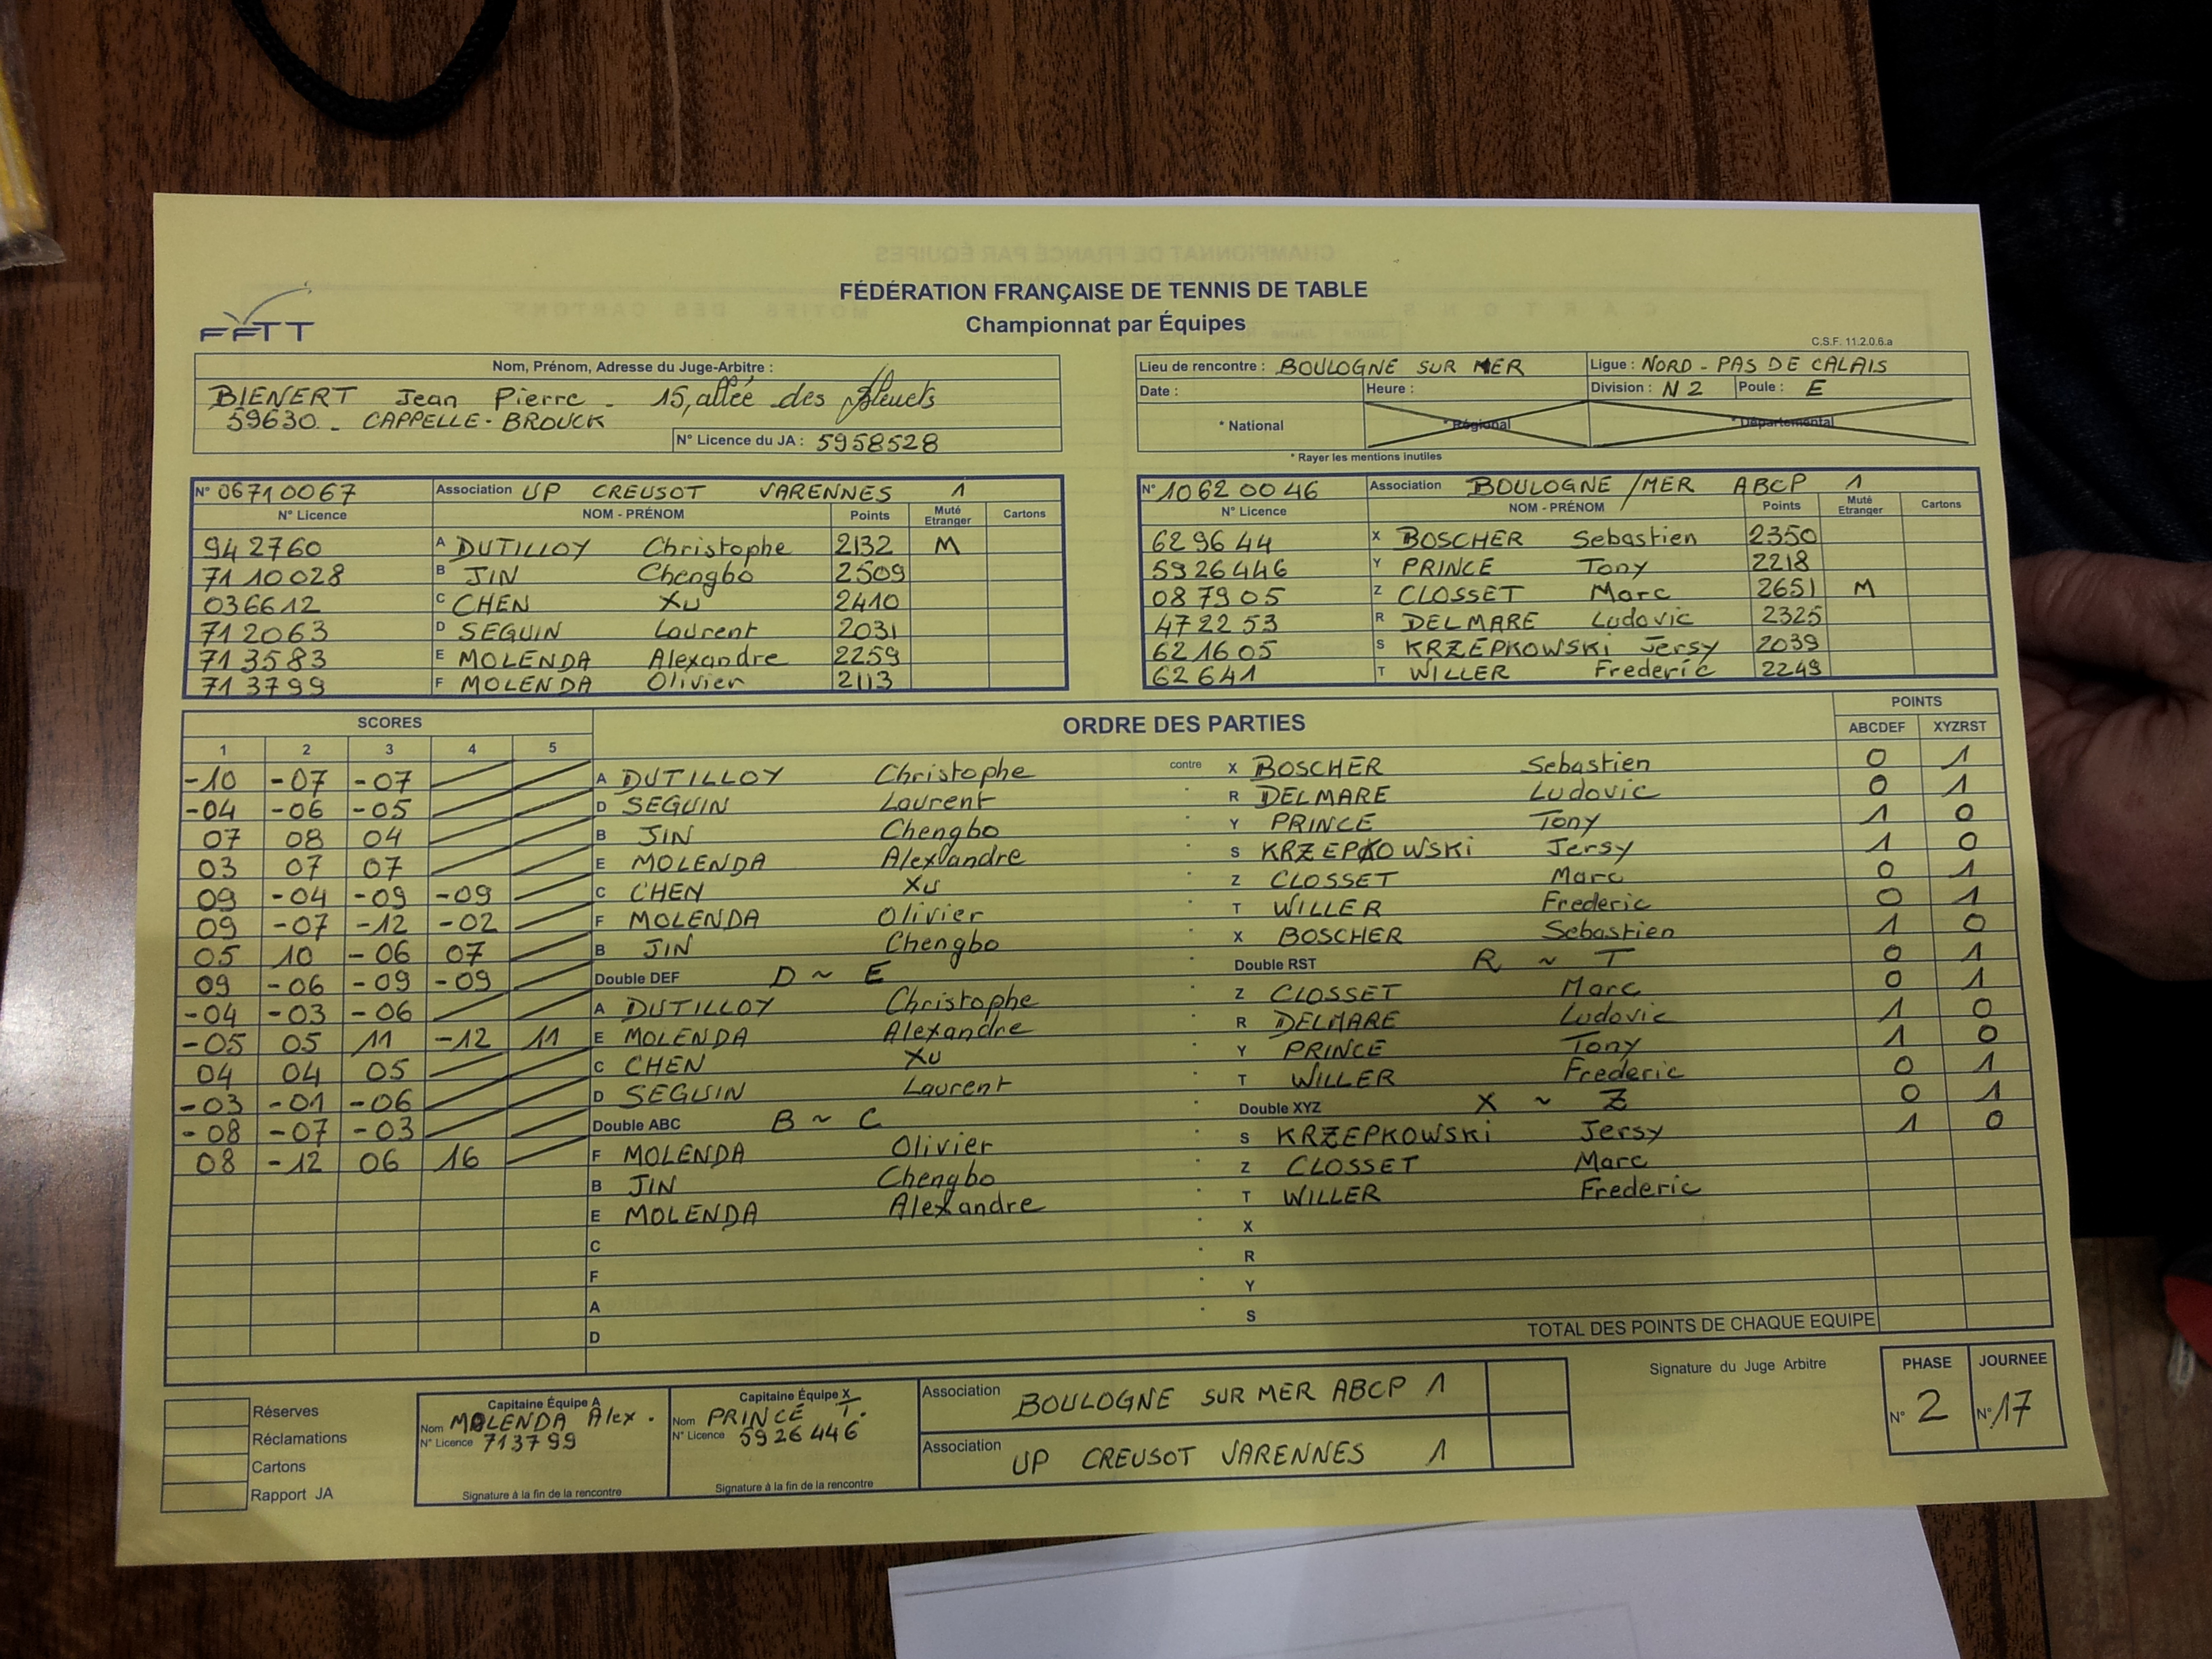 FFTT
FÉDÉRATION FRANÇAISE DE TENNIS DE TABLE
Championnat par Équipes
C.S.F. 11.2.0.6.a
Nom, Prénom, Adresse du Juge-Arbitre :
BIENERT Jean Pierre - 15, allée des Bleuets
59630 - CAPPELLE - BROUCK
N° Licence du JA : 5958528
Lieu de rencontre : BOULOGNE SUR MER Ligue : NORD - PAS DE CALAIS
Date : Heure : Division : N 2 Poule : E
* National * Régional * Départemental
* Rayer les mentions inutiles
N° 06710067 Association UP CREUSOT VARENNES 1
N° Licence NOM - PRÉNOM Points Muté Etranger Cartons
942760 A DUTILLOY Christophe 2132 M
7110028 B JIN Chengbo 2509
036612 C CHEN Xu 2410
712063 D SEGUIN Laurent 2031
713583 E MOLENDA Alexandre 2259
713799 F MOLENDA Olivier 2113
N° 10620046 Association BOULOGNE /MER ABCP 1
N° Licence NOM - PRÉNOM Points Muté Etranger Cartons
629644 X BOSCHER Sebastien 2350
5926446 Y PRINCE Tony 2218
087905 Z CLOSSET Marc 2651 M
472253 R DELMARE Ludovic 2325
621605 S KRZEPKOWSKi Jersy 2039
62641 T WILLER Frederic 2249
SCORES ORDRE DES PARTIES POINTS
1 2 3 4 5 ABCDEF XYZRST
-10 -07 -07 A DUTILLOY Christophe contre X BOSCHER Sebastien 0 1
-04 -06 -05 D SEGUIN Laurent R DELMARE Ludovic 0 1
07 08 04 B JIN Chengbo Y PRINCE Tony 1 0
03 07 07 E MOLENDA Alexandre S KRZEPKOWSKi Jersy 1 0
09 -04 -09 -09 C CHEN Xu Z CLOSSET Marc 0 1
09 -07 -12 -02 F MOLENDA Olivier T WILLER Frederic 0 1
05 10 -06 07 B JIN Chengbo X BOSCHER Sebastien 1 0
09 -06 -09 -09 Double DEF D ~ E Double RST R ~ T 0 1
-04 -03 -06 A DUTILLOY Christophe Z CLOSSET Marc 0 1
-05 05 11 -12 11 E MOLENDA Alexandre R DELMARE Ludovic 1 0
04 04 05 C CHEN Xu Y PRINCE Tony 1 0
-03 -01 -06 D SEGUIN Laurent T WILLER Frederic 0 1
-08 -07 -03 Double ABC B ~ C Double XYZ X ~ Z 0 1
08 -12 06 16 F MOLENDA Olivier S KRZEPKOWSKi Jersy 1 0
B JIN Chengbo Z CLOSSET Marc
E MOLENDA Alexandre T WILLER Frederic
C X
F R
A Y
D S
TOTAL DES POINTS DE CHAQUE EQUIPE
Réserves
Réclamations
Cartons
Rapport JA
Capitaine Équipe A
Nom MOLENDA Alex.
N° Licence 713799
Signature à la fin de la rencontre
Capitaine Équipe X
Nom PRINCE T.
N° Licence 5926446
Signature à la fin de la rencontre
Association BOULOGNE SUR MER ABCP 1
Association UP CREUSOT VARENNES 1
Signature du Juge Arbitre
PHASE JOURNEE
N° 2 N° 17